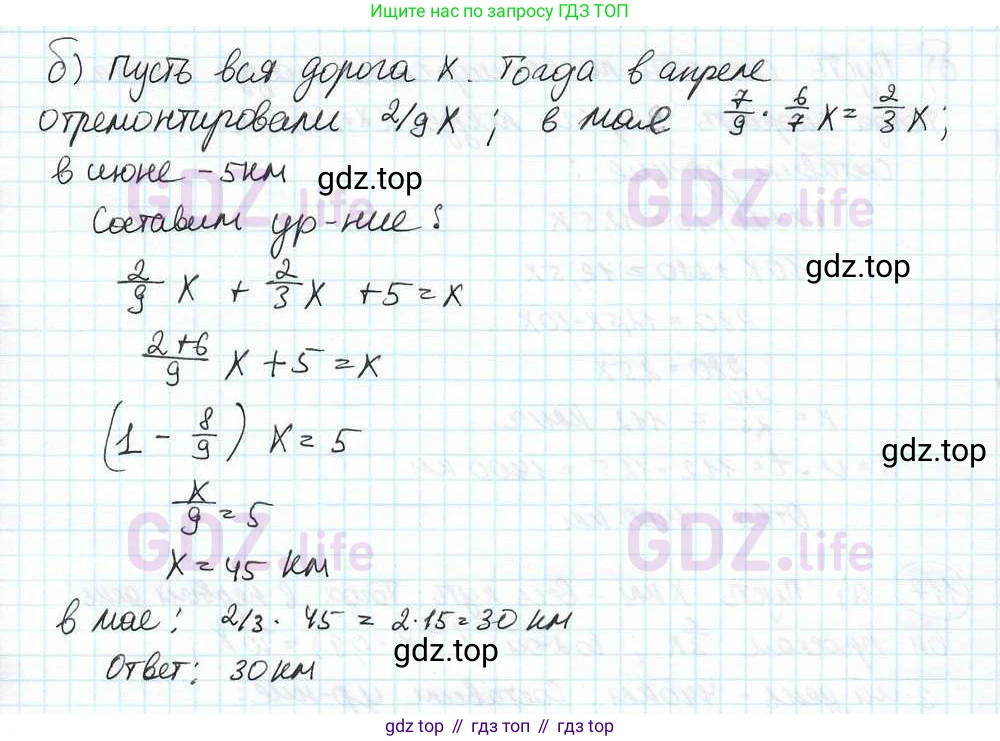 Ищите нас по запросу ГДЗ ТОП
б) Пусть вся дорога x. Тогда в апреле
отремонтировали 2/9 x; в мае 7/9 · 6/7 x = 2/3 x;
в июне - 5 км
gdz.top
GDZ.life
GDZ.life
Составим ур-ние:
gdz.top
2/9 x + 2/3 x + 5 = x
2+6/9 x + 5 = x
(1 - 8/9) x = 5
gdz.top
x/9 = 5
GDZ.life
GDZ.life
x = 45 км
в мае: 2/3 · 45 = 2·15 = 30 км
gdz.top
Ответ: 30 км
gdz top // гдз топ // gdz.top